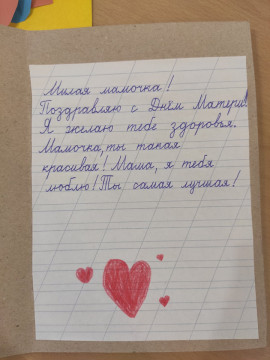 Милая мамочка!
Поздравляю с Днём Матери!
Я желаю тебе здоровья.
Мамочка, ты такая
красивая! Мама, я тебя
люблю! Ты самая лучшая!